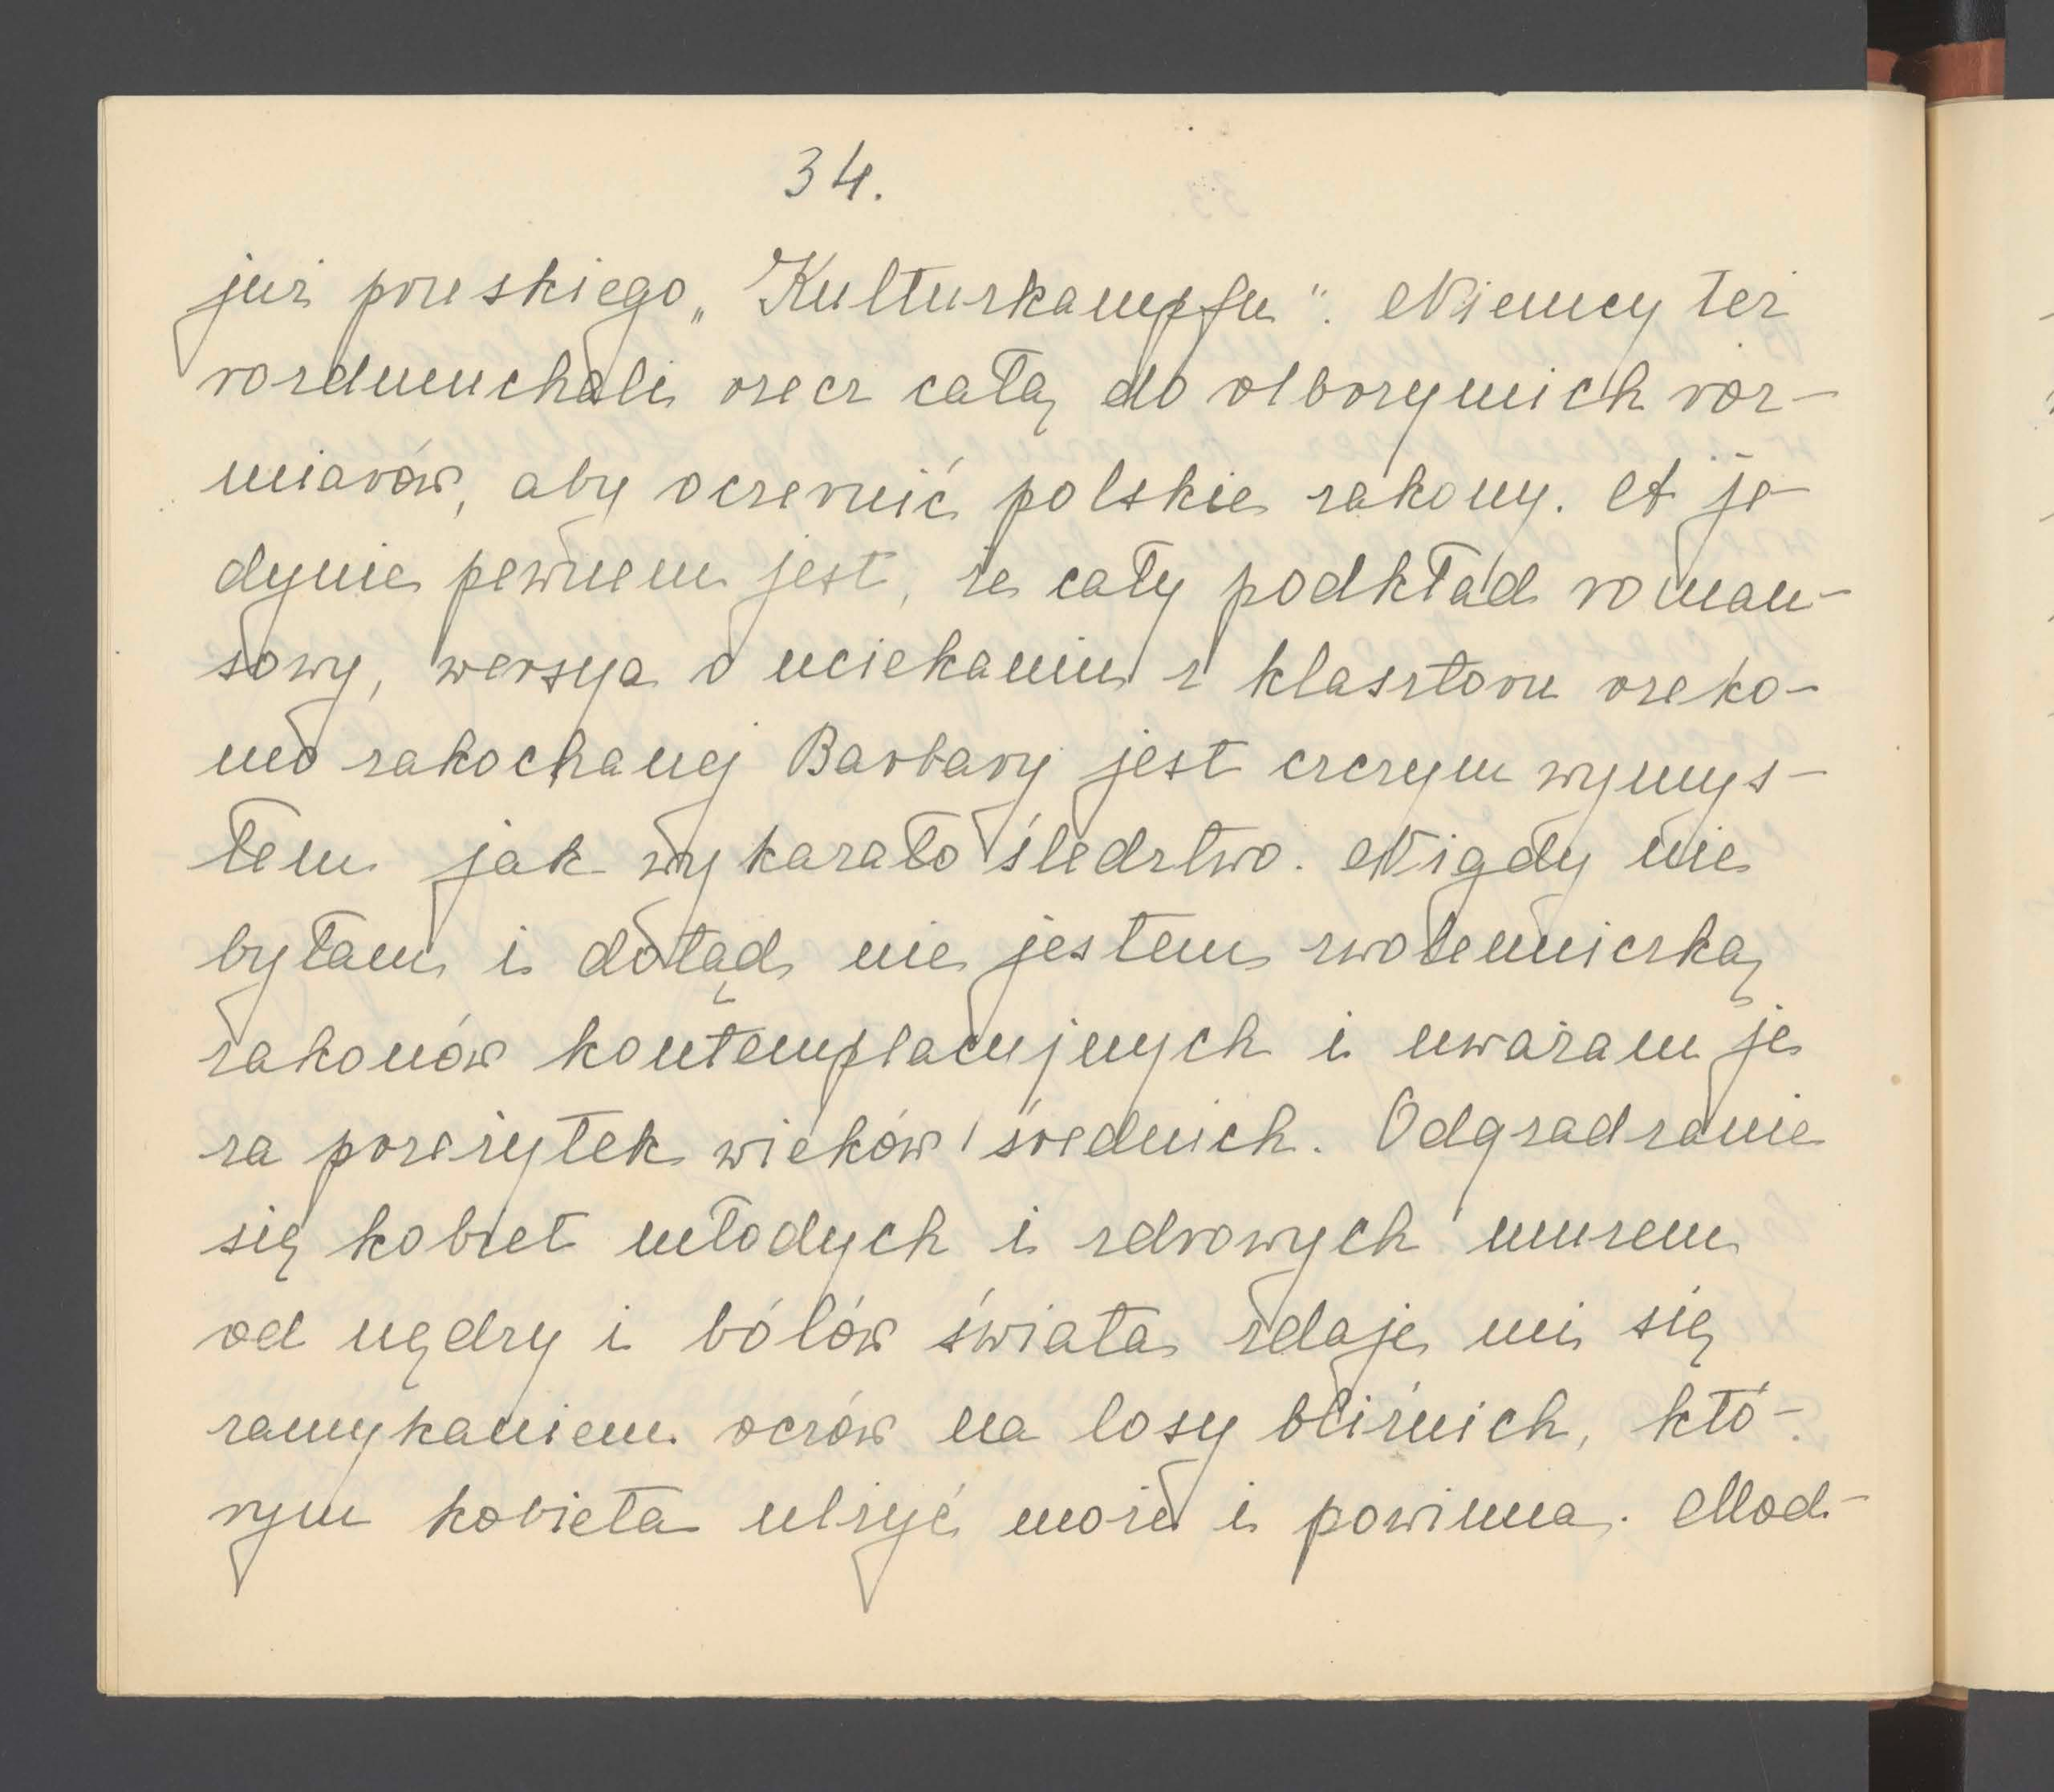 34.
już pruskiego „Kulturkampfu". Niemcy też
rozdmuchali rzecz całą do olbrzymich roz-
miarów, aby oczernić polskie zakony. A je-
dynie pewnem jest, że cały podkład roman-
sowy, wersya o uciekaniu z klasztoru rzeko-
mo zakochanej Barbary jest czczym wymys-
łem jak wykazało śledztwo. Nigdy nie
byłam i dotąd nie jestem zwolenniczką
zakonów kontemplacyjnych i uważam je
za przeżytek wieków średnich. Odgradzanie
się kobiet młodych i zdrowych murem
od nędzy i bólów świata zdaje mi się
zamykaniem oczów na losy bliźnich, któ-
rym kobieta ulżyć może i powinna. Mod-